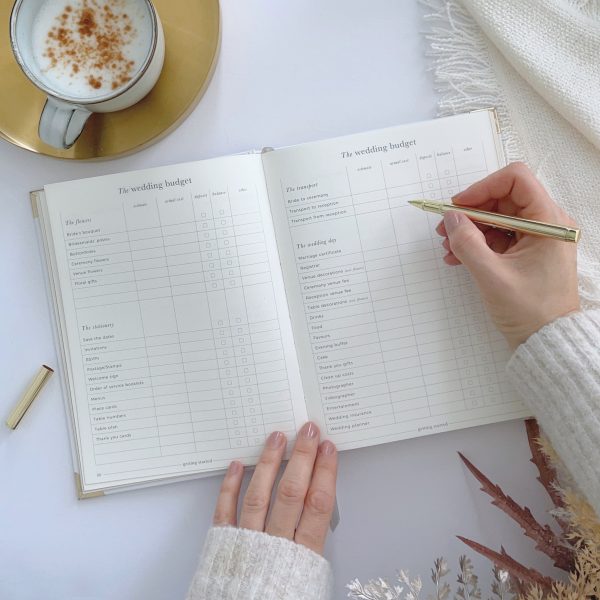 The wedding budget
estimate actual cost deposit balance other
The flowers
Bride's bouquet
Bridesmaids' posies
Buttonholes
Ceremony flowers
Venue flowers
Floral gifts
The stationery
Save the dates
Invitations
RSVPs
Postage/stamps
Welcome sign
Order of service booklets
Menus
Place cards
Table numbers
Table plan
Thank you cards
getting started
The wedding budget
estimate actual cost deposit balance other
The transport
Bride to ceremony
Transport to reception
Transport from reception
The wedding day
Marriage certificate
Registrar
Venue decorations
Ceremony venue fee
Reception venue fee
Table decorations
Drinks
Food
Favours
Evening buffet
Cake
Thank you gifts
Clean up costs
Photographer
Videographer
Entertainment
Wedding insurance
Wedding planner
getting started